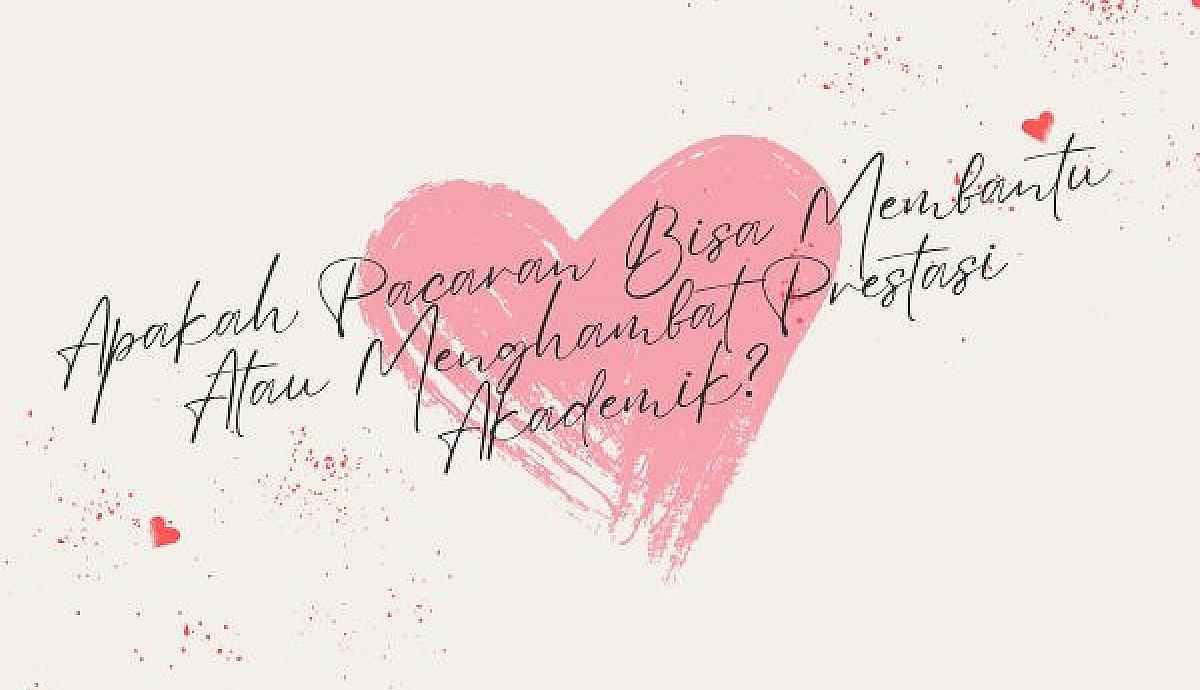 Apakah Pacaran Bisa Membantu
Atau Menghambat Prestasi
Akademik?